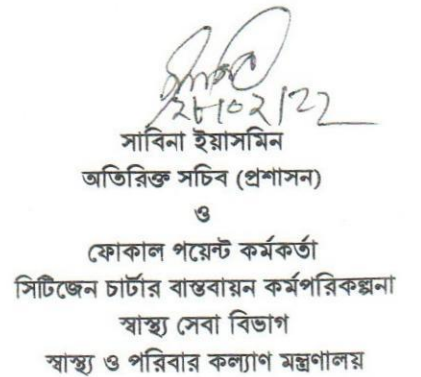 সাবিনা ইয়াসমিন
অতিরিক্ত সচিব (প্রশাসন)
ও
ফোকাল পয়েন্ট কর্মকর্তা
সিটিজেন চার্টার বাস্তবায়ন কর্মপরিকল্পনা
স্বাস্থ্য সেবা বিভাগ
স্বাস্থ্য ও পরিবার কল্যাণ মন্ত্রণালয়